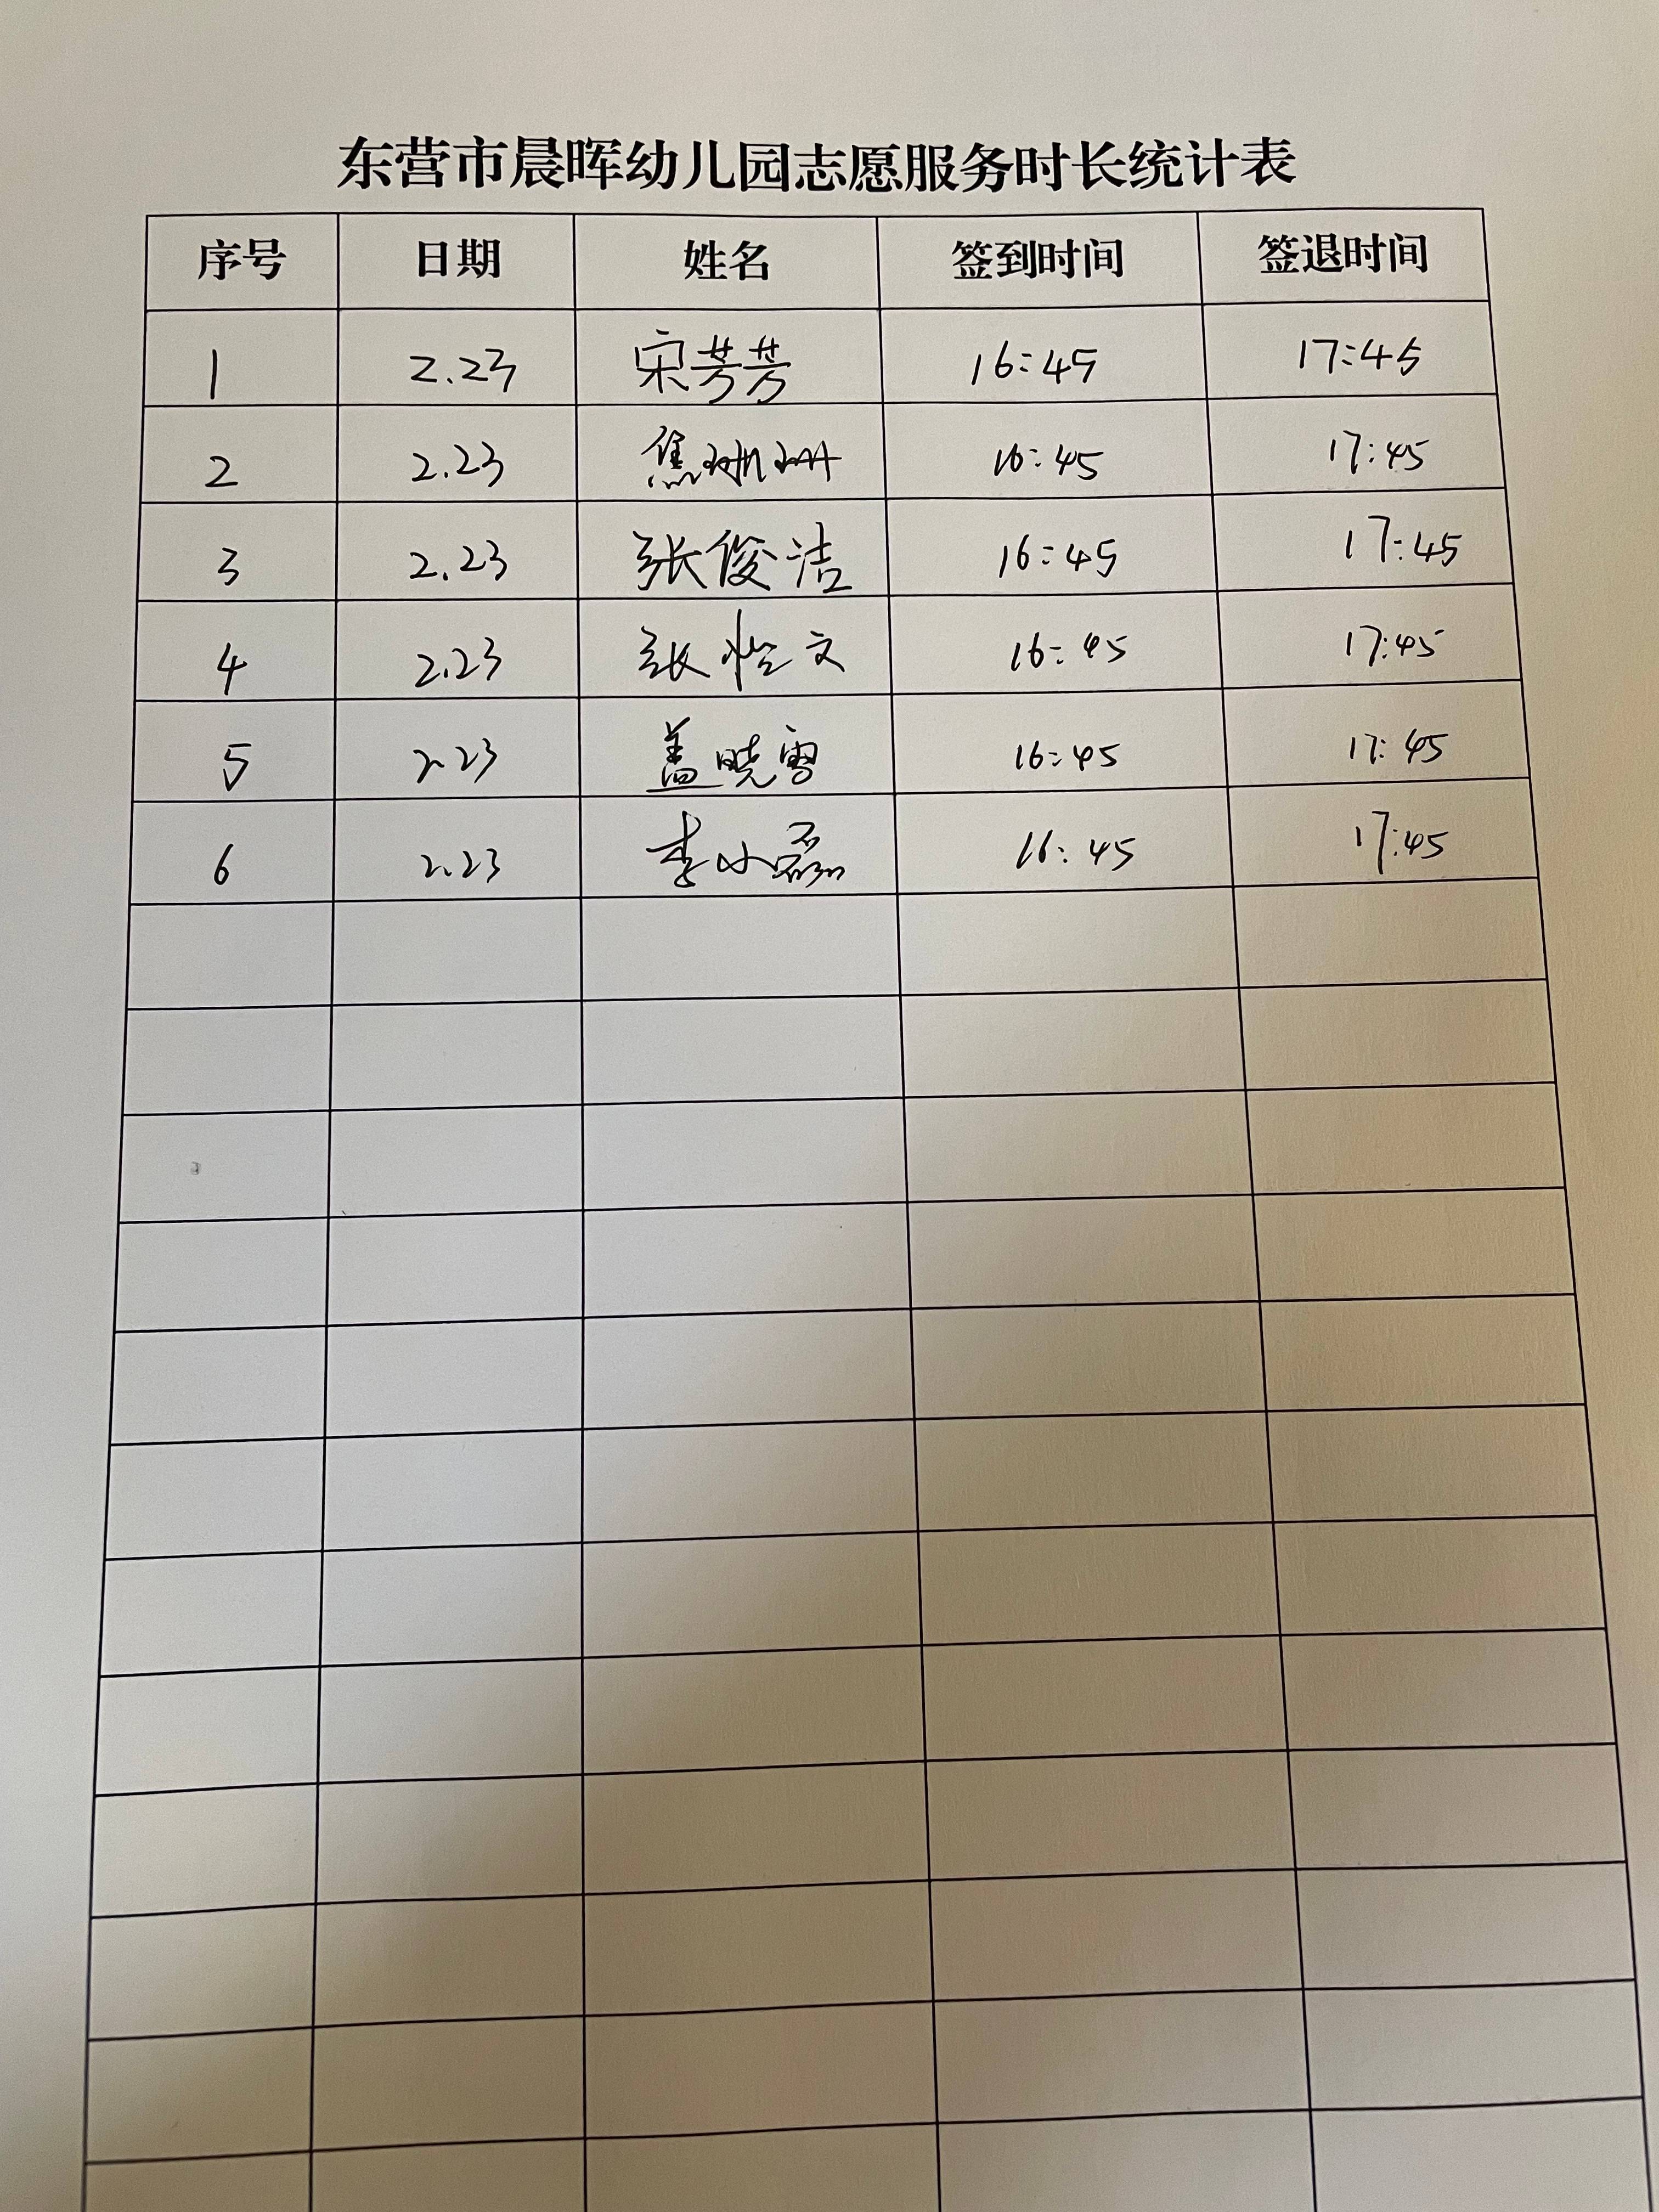 东营市晨晖幼儿园志愿服务时长统计表
序号 日期 姓名 签到时间 签退时间
1 2.23 宋芳芳 16:45 17:45
2 2.23 焦珊珊 16:45 17:45
3 2.23 张俊洁 16:45 17:45
4 2.23 张 文 16:45 17:45
5 2.23 盖晓雪 16:45 17:45
6 2.23 李小磊 16:45 17:45